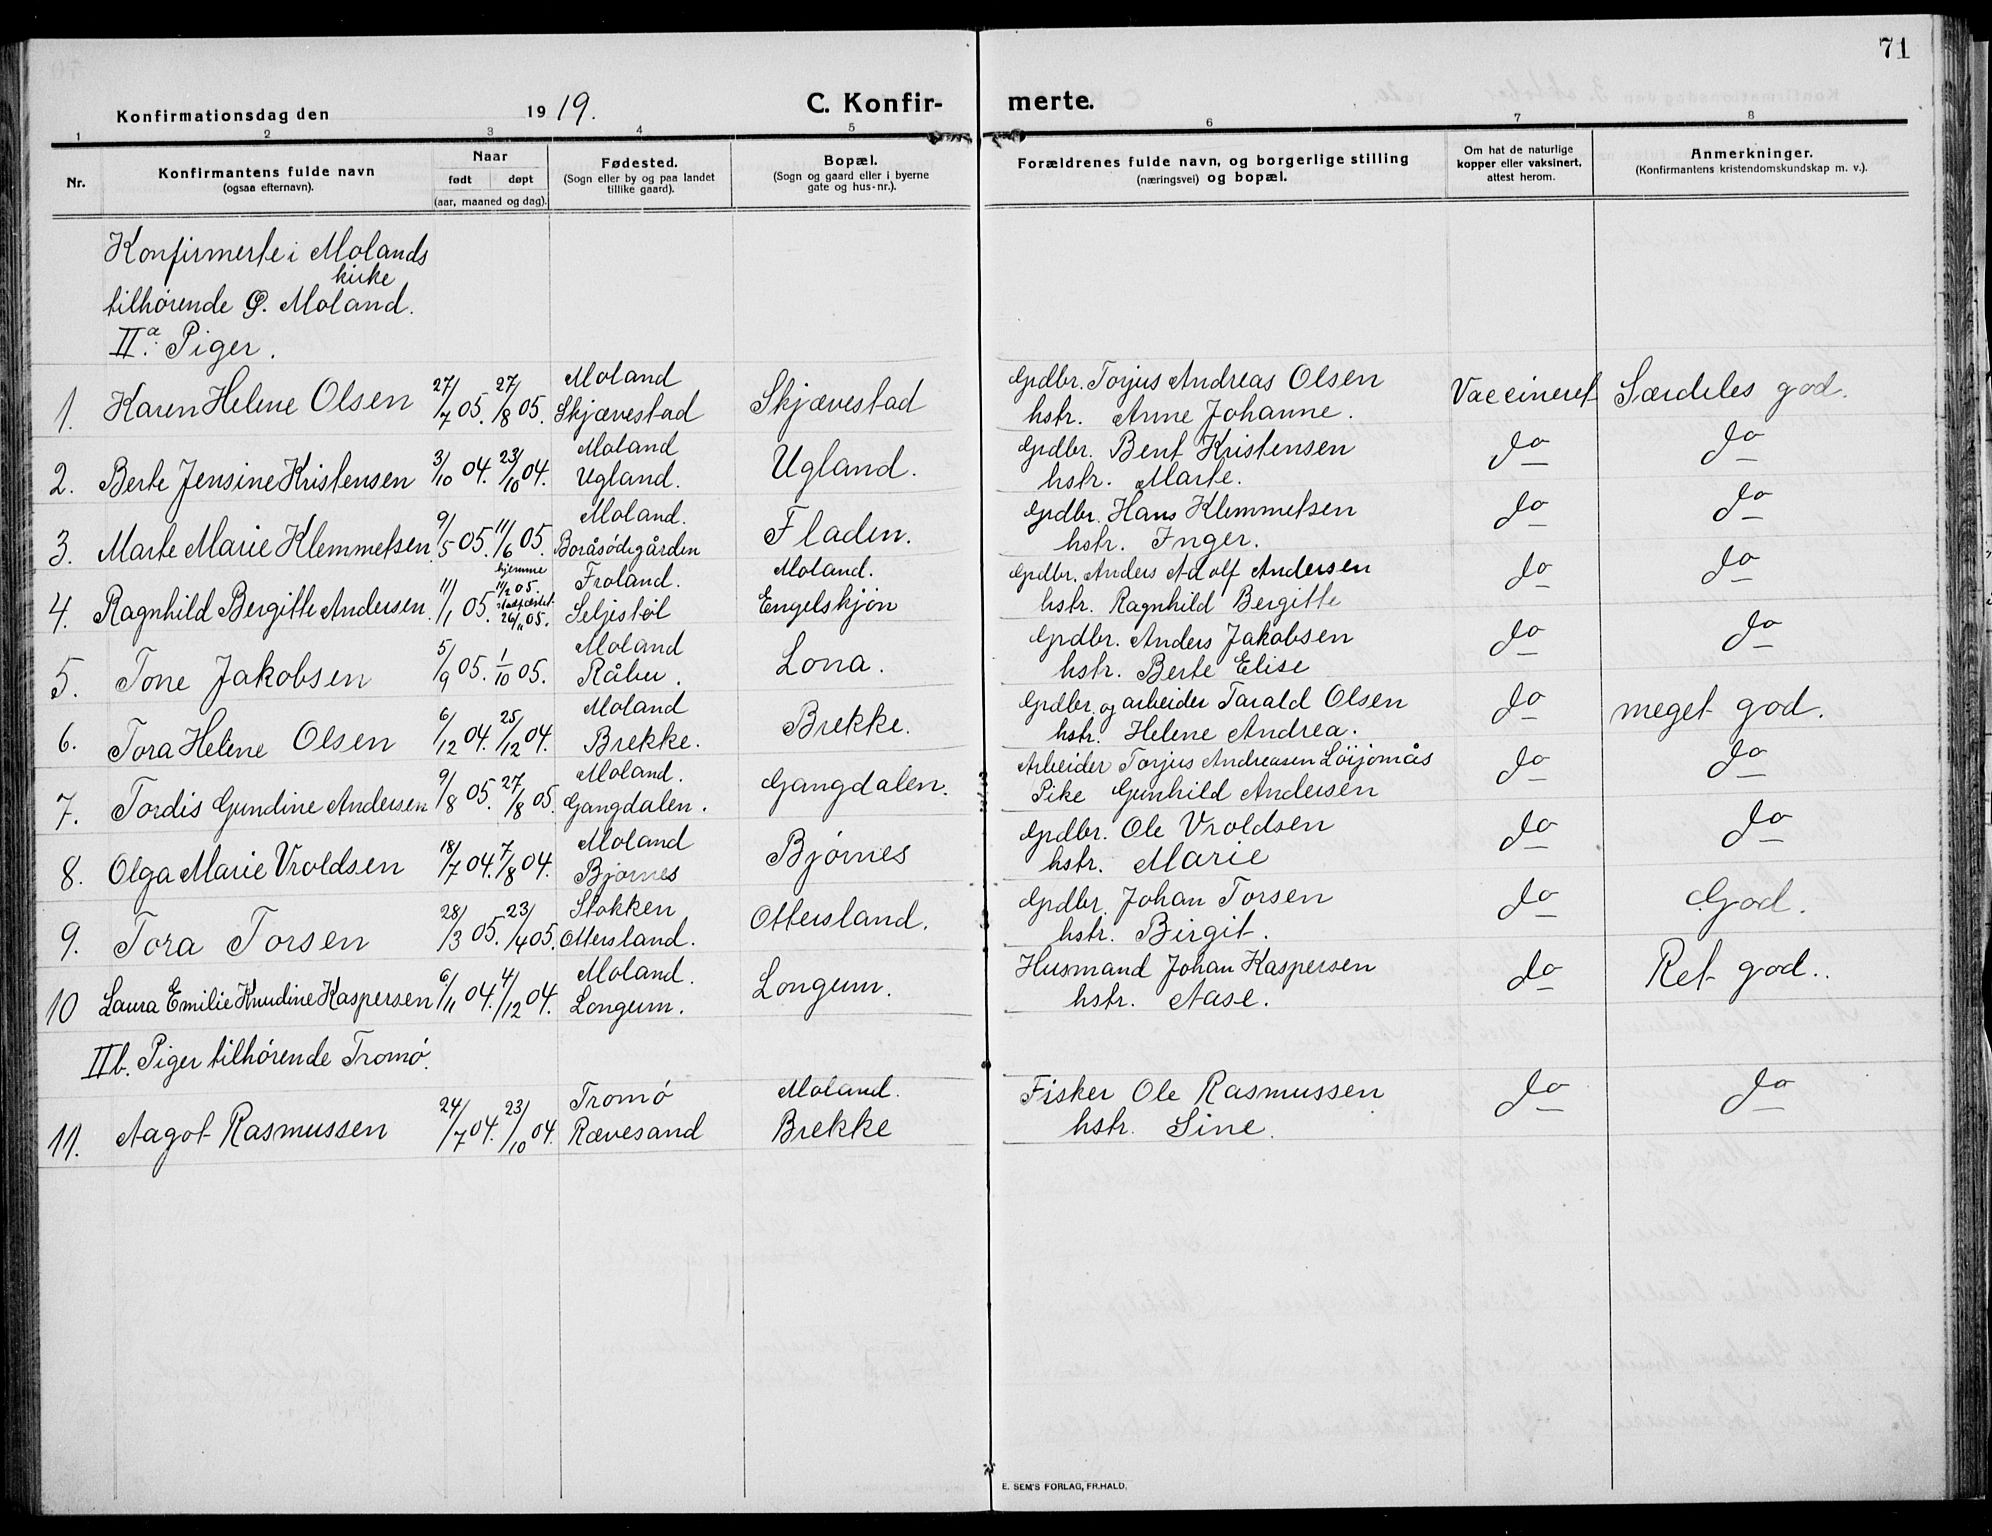 71
Konfirmationsdag den 1919. C. Konfirmerte.
1 2 3 4 5 6 7 8
Nr. Konfirmantens fulde navn (ogsaa efternavn). Naar født døpt (aar, maaned og dag). Fødested. (Sogn eller by og paa landet tillike gaard). Bopæl. (Sogn og gaard eller i byerne gate og hus-nr.). Forældrenes fulde navn, og borgerlige stilling (næringsvei) og bopæl. Om hat de naturlige kopper eller vaksinert, attest herom. Anmerkninger. (Konfirmantens kristendomskundskap m. v.).
Konfirmerte i Molands
kirke
tilhørende Ø. Moland.
IIa. Piger.
1. Karen Helene Olsen 27/7 05. 27/8 05. Moland Skjævestad Skjævestad Grdbr. Torjus Andreas Olsen hstr. Anne Johanne. Vaccineret Særdeles god.
2. Berte Jensine Kristensen 3/10 04. 23/10 04. Moland Ugland. Ugland. Grdbr. Bent Kristensen hstr. Marte. do do
3. Marte Marie Klemmetsen 9/5 05. 11/6 05. Moland. Boråsødegården Fladen. Grdbr. Hans Klemmetsen hstr. Inger. do do
4. Ragnhild Bergitte Andersen. 11/1 05. hjemme 11/2 05. Stadfæstet 26/11 05. Froland. Seljestøl Moland. Engelskjøn Grdbr. Anders Adolf Andersen hstr. Ragnhild Bergitte do do
5. Tone Jakobsen 5/9 05. 1/10 05. Moland Råbu. Lona. Grdbr. Anders Jakobsen hstr. Berte Elise do do
6. Tora Helene Olsen 6/12 04. 25/12 04. Moland Brekke. Brekke. Grdbr. og arbeider Tarald Olsen hstr. Helene Andrea. do meget god.
7. Tordis Gundine Andersen 9/8 05. 27/8 05. Moland. Gangdalen. Gangdalen. Arbeider Torjus Andreasen Pike Gunhild Andersen do do
8. Olga Marie Vroldsen 18/7 04. 7/8 04. Moland Bjørnes Bjørnes Grdbr. Ole Vroldsen hstr. Marie do do
9. Tora Torsen 28/3 05. 23/4 05. Stokken Ottersland. Ottersland. Grdbr. Johan Torsen hstr. Birgit. do God.
10 Laura Emilie Knudine Kaspersen 6/11 04. 4/12 04. Moland. Longum. Longum. Husmand Johan Kaspersen hstr. Aase. do Ret god..
IIb. Piger tilhørende Tromø.
11. Aagot Rasmussen 24/7 04. 23/10 04. Tromø Rævesand Moland. Brekke Fisker Ole Rasmussen hstr. Sine. do do
E. SEM'S FORLAG, FR.HALD.